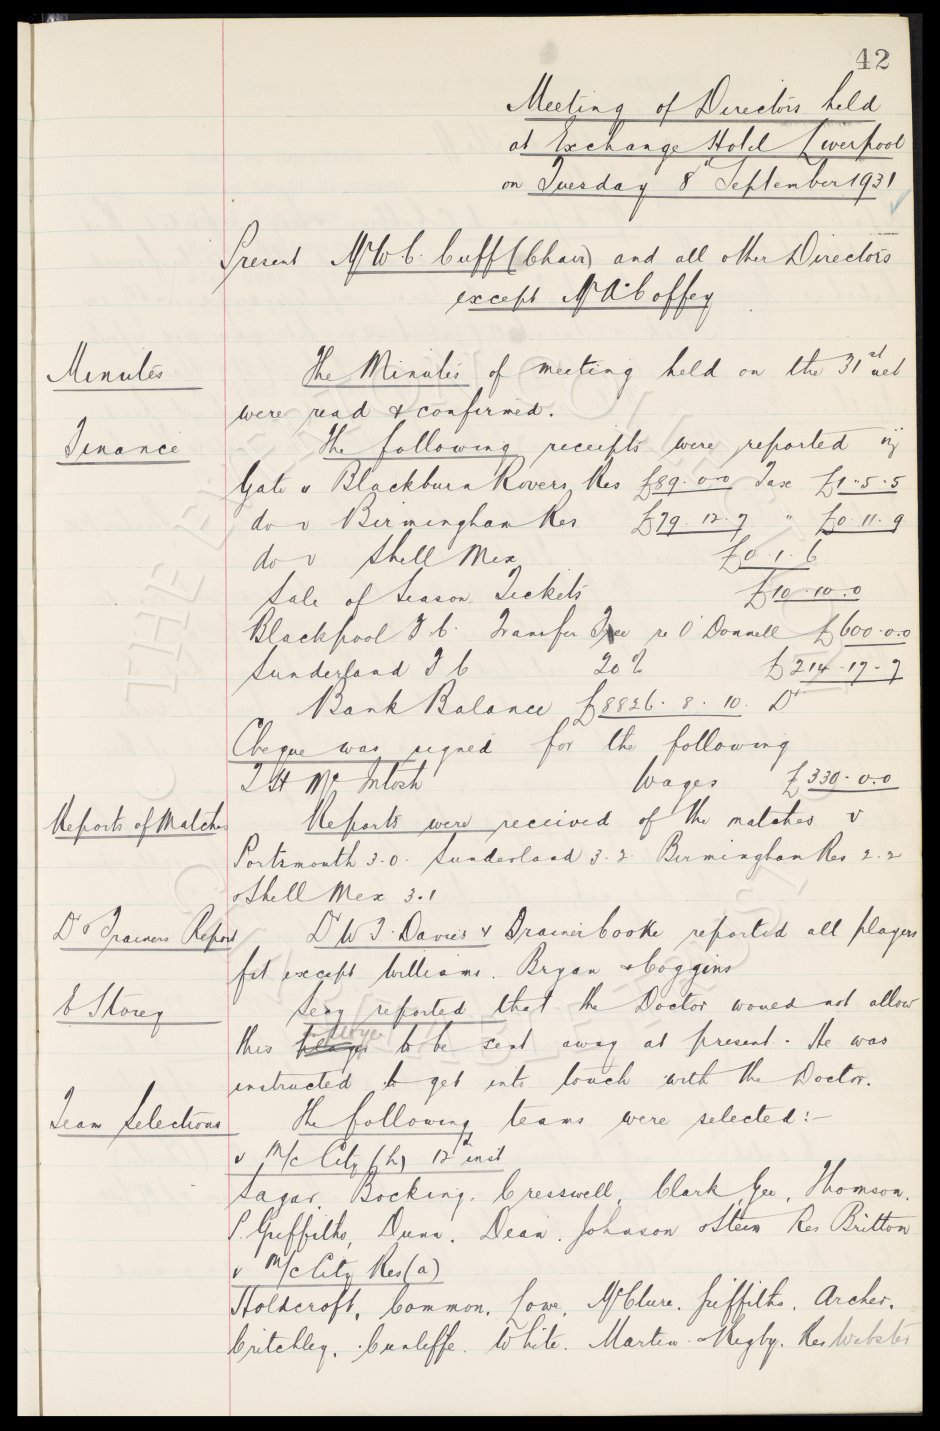 42
Meeting of Directors held
at Exchange Hotel Liverpool
on Tuesday 8th September 1931
Present Mr W. C. Cuff (Chair) and all other Directors
except Mr A. Coffey
Minutes The Minutes of meeting held on the 31st ult
were read & confirmed.
Finance The following receipts were reported viz
Gate v Blackburn Rovers Res £89.0.0 Tax £1.5.5
do v Birmingham Res £79.12.7 " £0.11.9
do v Shell Mex £0.1.6
Sale of Season Tickets £10.10.0
Blackpool F C. Transfer Fee re O'Donnell £600.0.0
Sunderland F C 20% £214.17.7
Bank Balance £8826.8.10. Dr
Cheque was signed for the following
T H McIntosh Wages £330.0.0
Reports of Matches Reports were received of the matches v
Portsmouth 3.0. Sunderland 3.2. Birmingham Res 2.2
& Shell Mex 3.1
Dr & Trainers Report Dr W T. Davies & Trainer Cooke reported all players
fit except Williams. Bryan & Coggins
E Storey Secy reported that the Doctor would not allow
this player employee to be sent away at present. He was
instructed to get into touch with the Doctor.
Team Selections The following teams were selected:-
v M/c City (h) 12th inst
Sagar, Bocking. Cresswell, Clark, Gee, Thomson.
P. Griffiths, Dunn. Dean. Johnson & Stein Res Britton
v M/c City Res (a)
Holdcroft, Common. Lowe, McClure. Griffiths. Archer.
Critchley. Cunliffe. White. Martin. & Rigby. Res Webster